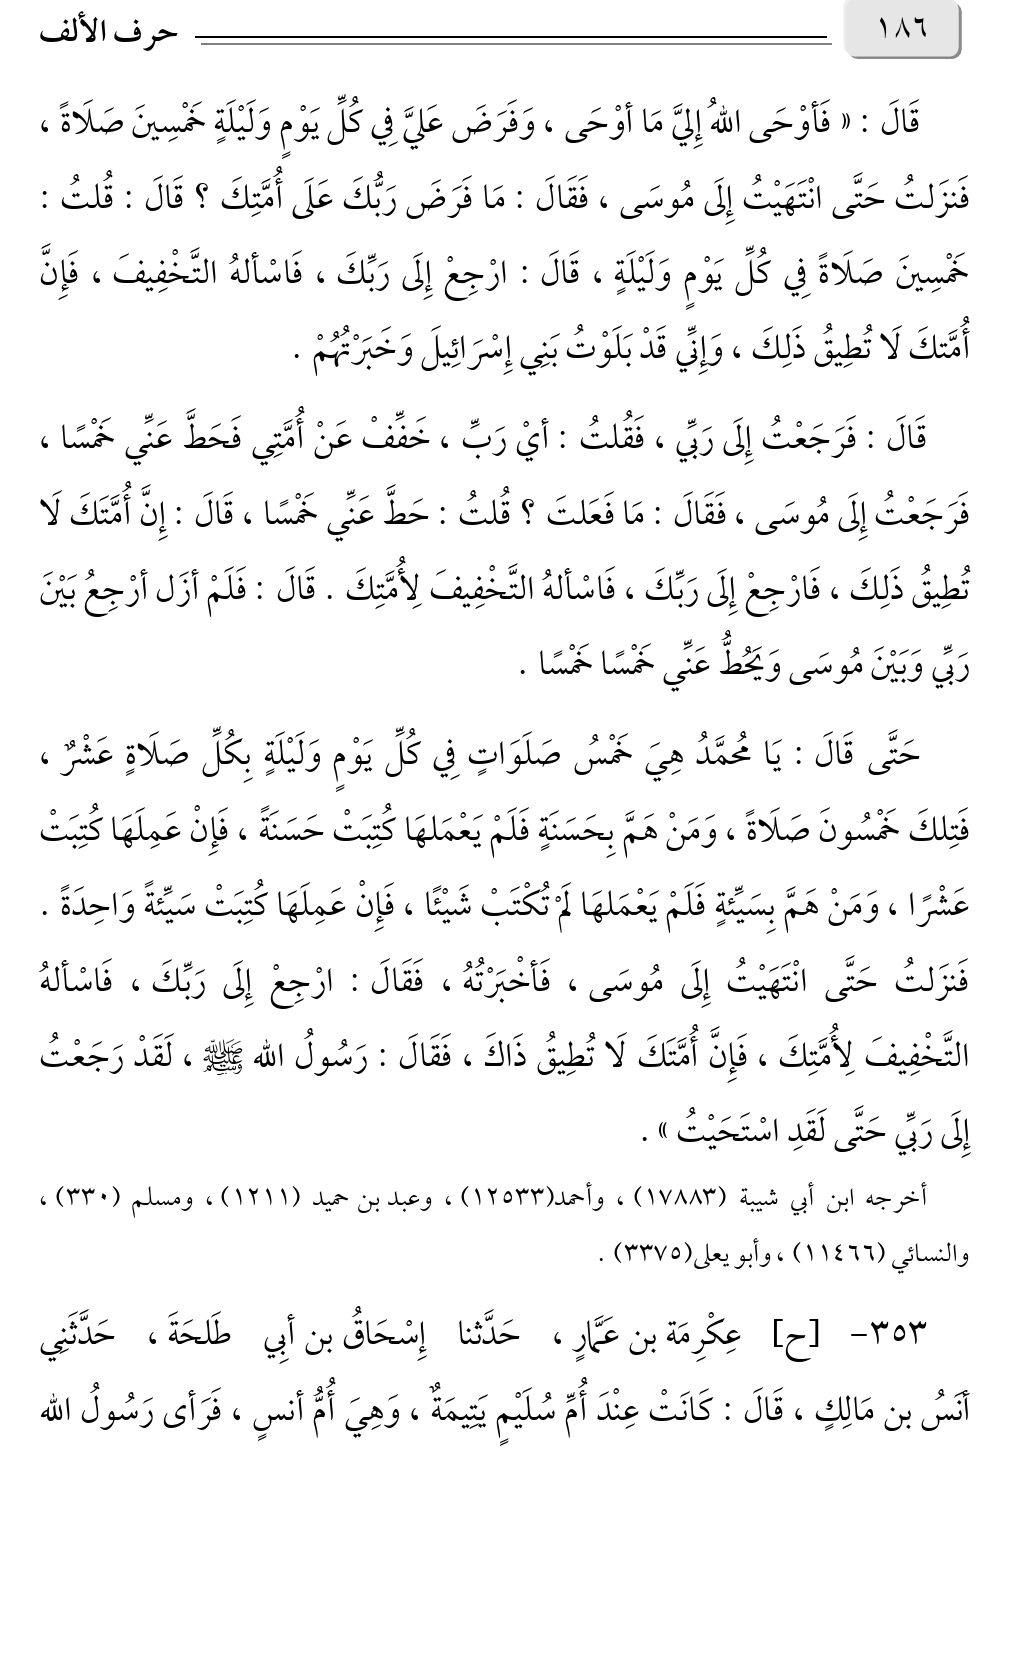 ١٨٦
حرف الألف
قَالَ : « فَأوْحَى اللهُ إِليَّ مَا أوْحَى ، وَفَرَضَ عَليَّ فِي كُلِّ يَوْمٍ وَلَيْلَةٍ خَمْسِينَ صَلَاةً ،
فَنزَلتُ حَتَّى انْتَهَيْتُ إِلَى مُوسَى ، فَقَالَ : مَا فَرَضَ رَبُّكَ عَلَى أُمَّتِكَ ؟ قَالَ : قُلتُ :
خَمْسِينَ صَلَاةً فِي كُلِّ يَوْمٍ وَلَيْلَةٍ ، قَالَ : ارْجِعْ إِلَى رَبِّكَ ، فَاسْألهُ التَّخْفِيفَ ، فَإِنَّ
أُمَّتكَ لَا تُطِيقُ ذَلِكَ ، وَإِنِّي قَدْ بَلَوْتُ بَنِي إِسْرَائِيلَ وَخَبَرْتُهُمْ .
قَالَ : فَرَجَعْتُ إِلَى رَبِّي ، فَقُلتُ : أيْ رَبِّ ، خَفِّفْ عَنْ أُمَّتِي فَحَطَّ عَنِّي خَمْسًا ،
فَرَجَعْتُ إِلَى مُوسَى ، فَقَالَ : مَا فَعَلتَ ؟ قُلتُ : حَطَّ عَنِّي خَمْسًا ، قَالَ : إِنَّ أُمَّتَكَ لَا
تُطِيقُ ذَلِكَ ، فَارْجِعْ إِلَى رَبِّكَ ، فَاسْألهُ التَّخْفِيفَ لِأُمَّتِكَ . قَالَ : فَلَمْ أزَل أرْجِعُ بَيْنَ
رَبِّي وَبَيْنَ مُوسَى وَيَحُطُّ عَنِّي خَمْسًا خَمْسًا .
حَتَّى قَالَ : يَا مُحمَّدُ هِيَ خَمْسُ صَلَوَاتٍ فِي كُلِّ يَوْمٍ وَلَيْلَةٍ بِكُلِّ صَلَاةٍ عَشْرٌ ،
فَتِلكَ خَمْسُونَ صَلَاةً ، وَمَنْ هَمَّ بِحَسَنَةٍ فَلَمْ يَعْمَلهَا كُتِبَتْ حَسَنَةً ، فَإِنْ عَمِلَهَا كُتِبَتْ
عَشْرًا ، وَمَنْ هَمَّ بِسَيِّئةٍ فَلَمْ يَعْمَلهَا لَمْ تُكْتَبْ شَيْئًا ، فَإِنْ عَمِلَهَا كُتِبَتْ سَيِّئةً وَاحِدَةً .
فَنزَلتُ حَتَّى انْتَهَيْتُ إِلَى مُوسَى ، فَأخْبَرْتُهُ ، فَقَالَ : ارْجِعْ إِلَى رَبِّكَ ، فَاسْألهُ
التَّخْفِيفَ لِأُمَّتِكَ ، فَإِنَّ أُمَّتَكَ لَا تُطِيقُ ذَاكَ ، فَقَالَ : رَسُولُ الله ﷺ ، لَقَدْ رَجَعْتُ
إِلَى رَبِّي حَتَّى لَقَدِ اسْتَحَيْتُ » .
أخرجه ابن أبي شيبة (١٧٨٨٣) ، وأحمد(١٢٥٣٣) ، وعبد بن حميد (١٢١١) ، ومسلم (٣٣٠) ،
والنسائي (١١٤٦٦) ، وأبو يعلى(٣٣٧٥) .
٣٥٣- [ح] عِكْرِمَة بن عَمَّارٍ ، حَدَّثنا إِسْحَاقُ بن أبِي طَلحَةَ ، حَدَّثَنِي
أنَسُ بن مَالِكٍ ، قَالَ : كَانَتْ عِنْدَ أُمِّ سُلَيْمٍ يَتِيمَةٌ ، وَهِيَ أُمُّ أنسٍ ، فَرَأى رَسُولُ الله